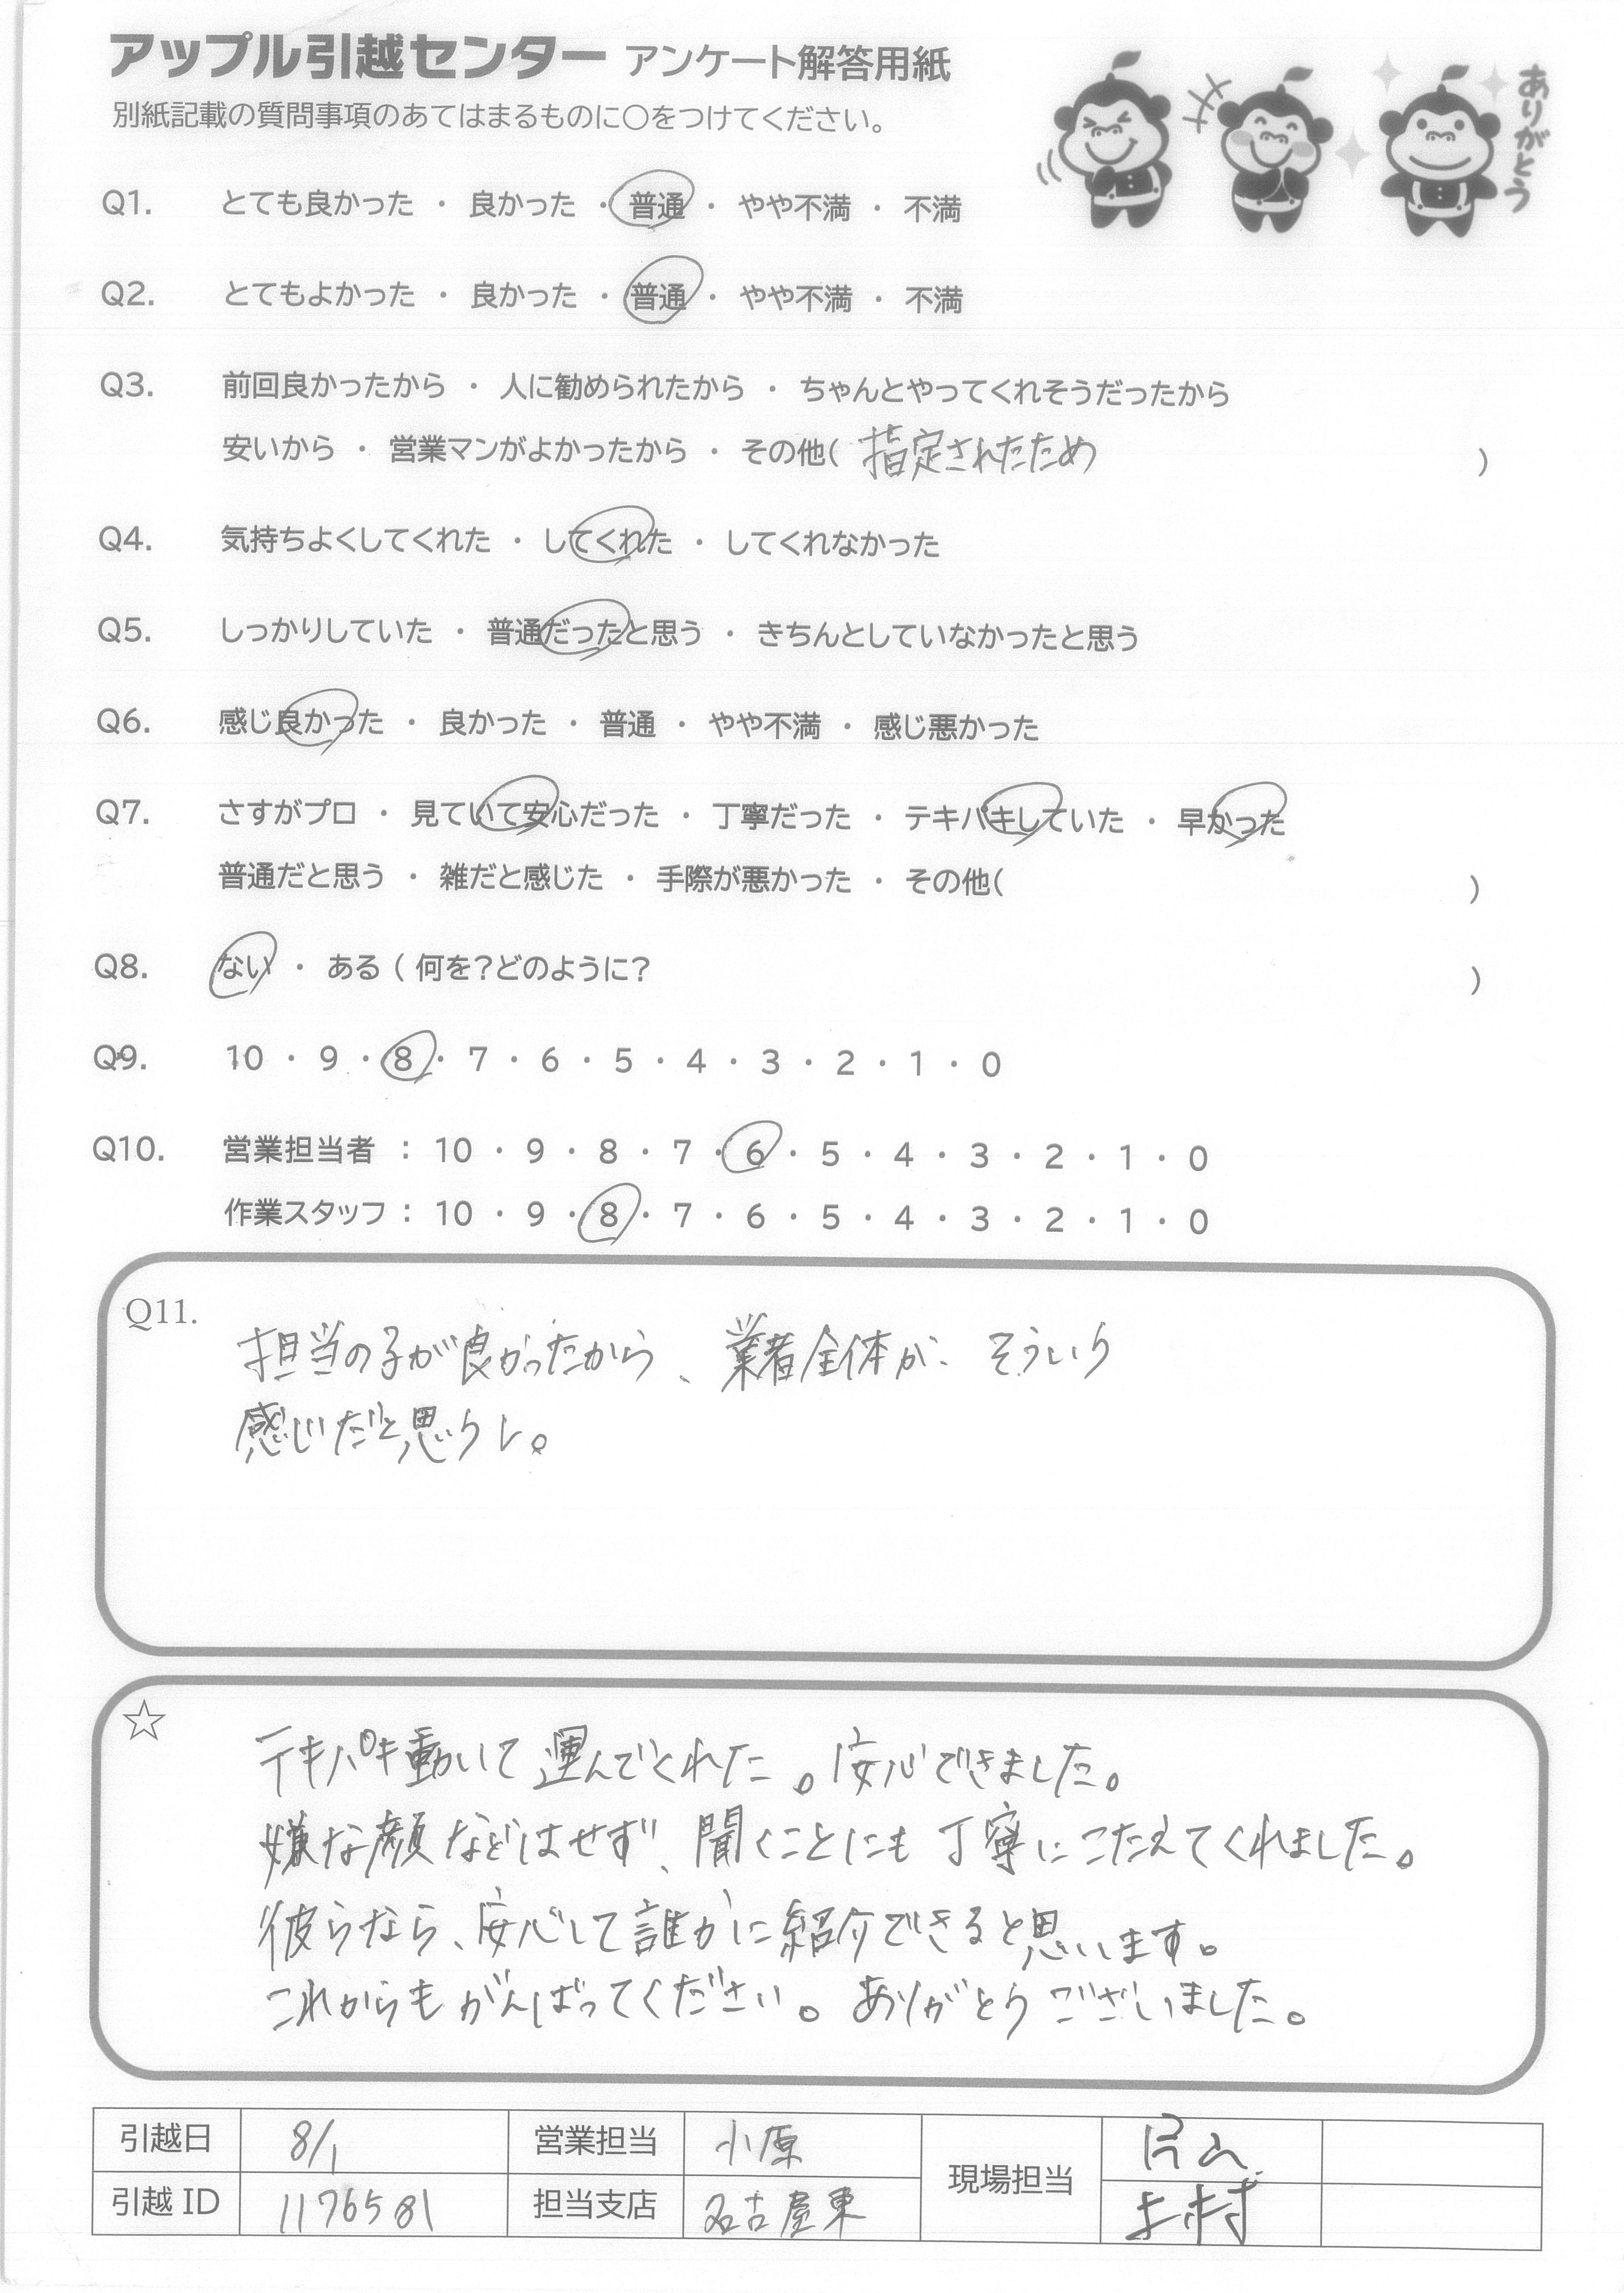 アップル引越センター アンケート解答用紙
別紙記載の質問事項のあてはまるものに○をつけてください。
ありがとう
Q1. とても良かった ・ 良かった ・ 普通 ・ やや不満 ・ 不満
Q2. とてもよかった ・ 良かった ・ 普通 ・ やや不満 ・ 不満
Q3. 前回良かったから ・ 人に勧められたから ・ ちゃんとやってくれそうだったから
安いから ・ 営業マンがよかったから ・ その他( 指定されたため )
Q4. 気持ちよくしてくれた ・ してくれた ・ してくれなかった
Q5. しっかりしていた ・ 普通だったと思う ・ きちんとしていなかったと思う
Q6. 感じ良かった ・ 良かった ・ 普通 ・ やや不満 ・ 感じ悪かった
Q7. さすがプロ ・ 見ていて安心だった ・ 丁寧だった ・ テキパキしていた ・ 早かった
普通だと思う ・ 雑だと感じた ・ 手際が悪かった ・ その他( )
Q8. ない ・ ある ( 何を?どのように? )
Q9. 10 ・ 9 ・ 8 ・ 7 ・ 6 ・ 5 ・ 4 ・ 3 ・ 2 ・ 1 ・ 0
Q10. 営業担当者 : 10 ・ 9 ・ 8 ・ 7 ・ 6 ・ 5 ・ 4 ・ 3 ・ 2 ・ 1 ・ 0
作業スタッフ : 10 ・ 9 ・ 8 ・ 7 ・ 6 ・ 5 ・ 4 ・ 3 ・ 2 ・ 1 ・ 0
Q11.
担当の子が良かったから、業者全体が、そういう
感じだと思うし。
☆
テキパキ動いて運んでくれた。安心できました。
嫌な顔などはせず、聞くことにも丁寧にこたえてくれました。
彼らなら、安心して誰かに紹介できると思います。
これからもがんばってください。ありがとうございました。
引越日 8/1 営業担当 小原 現場担当 片山
引越 ID 1176581 担当支店 名古屋東 土村